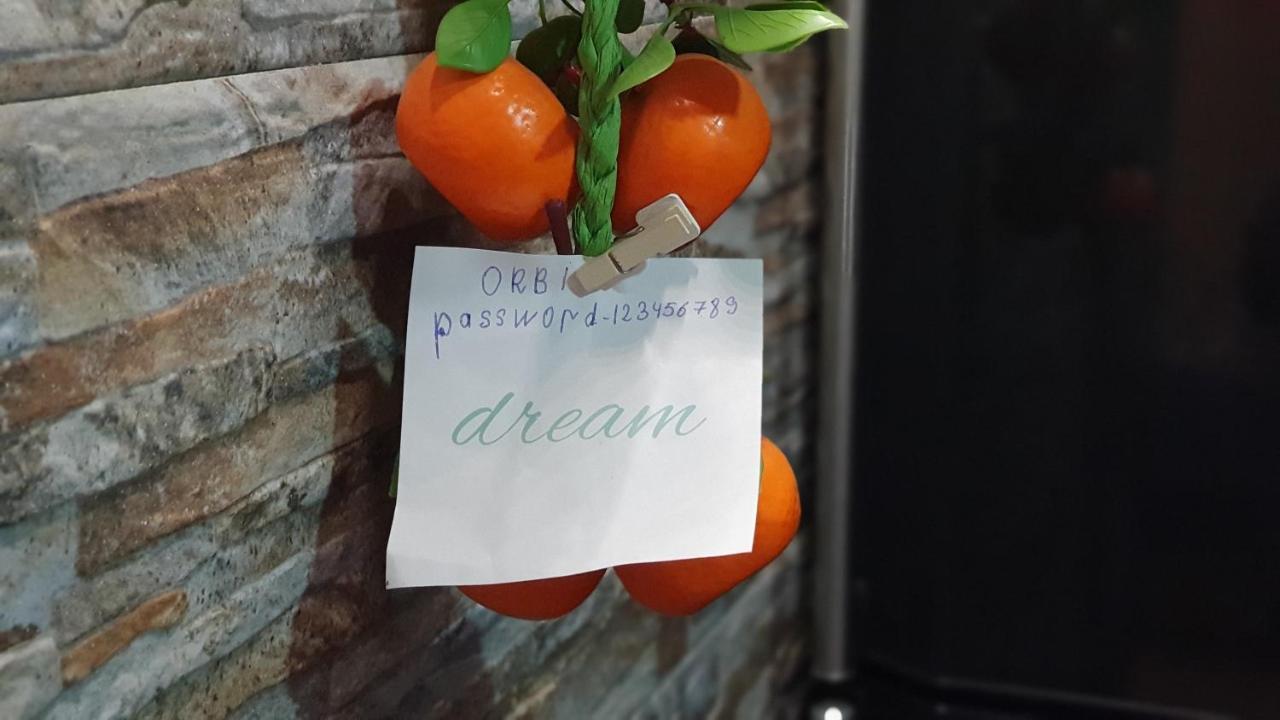 ORBI
password-123456789
dream